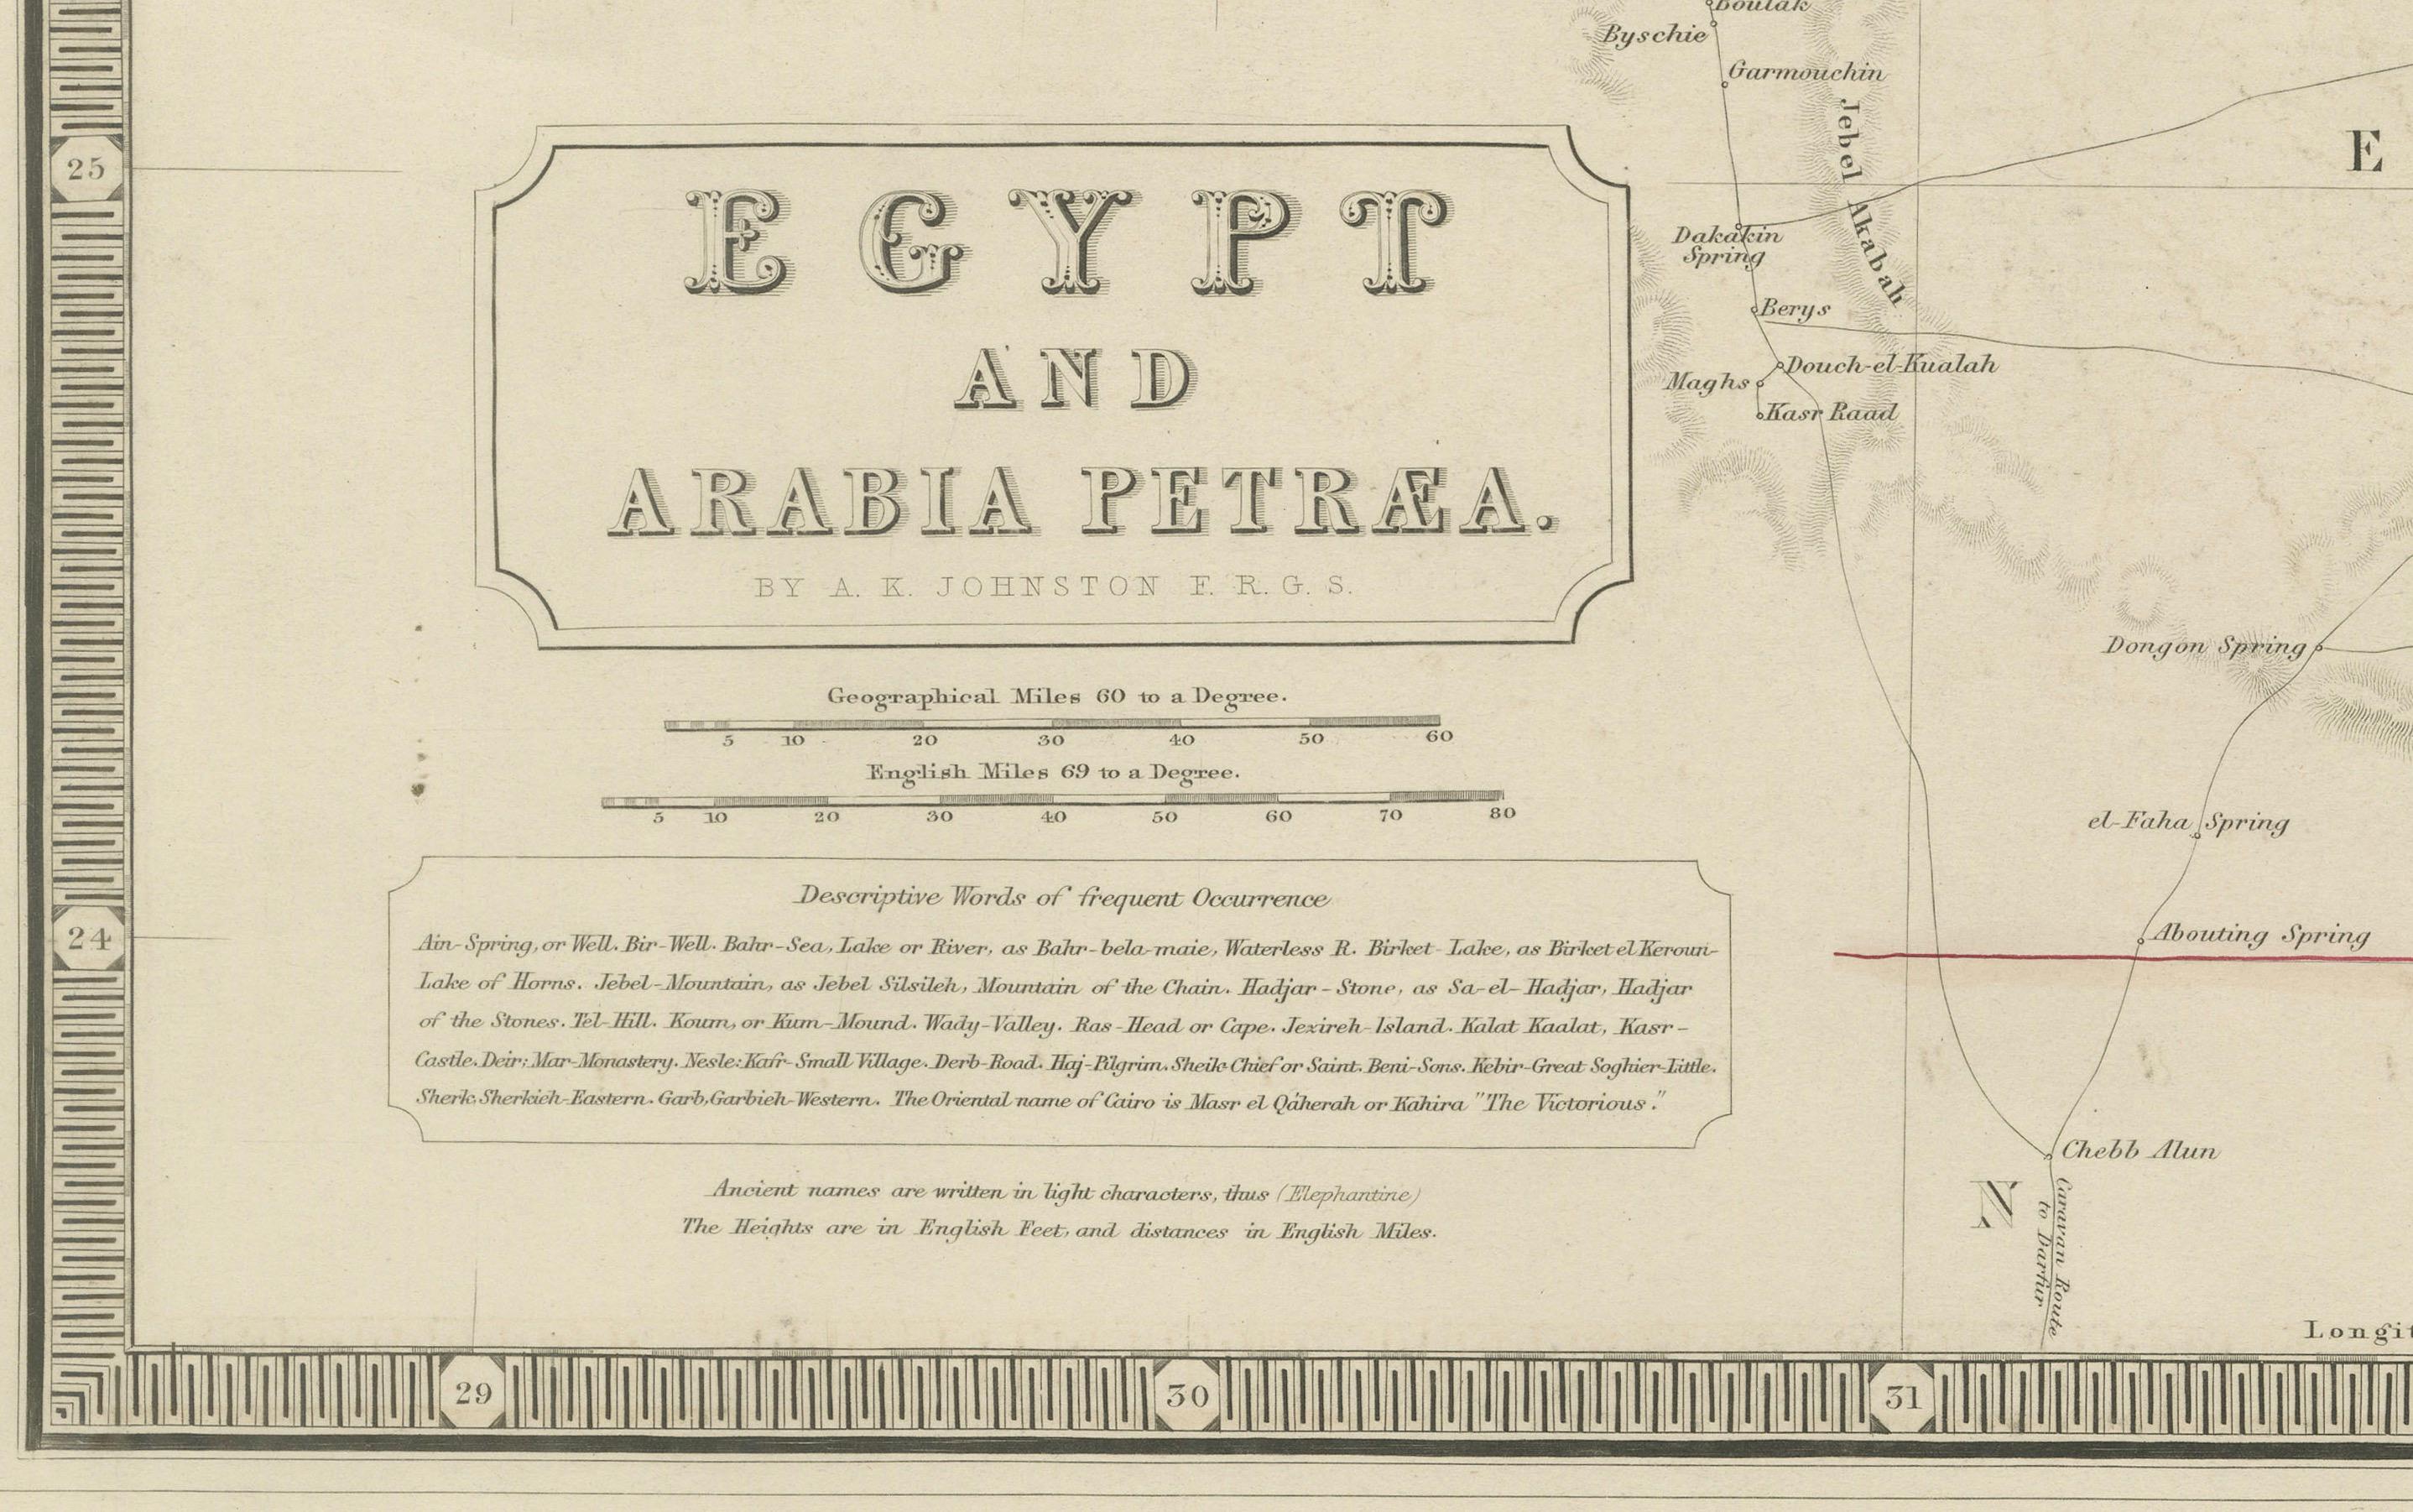 Boulak
Byschie
Garmouchin
Jebel Akabah
25
E
EGYPT
AND
ARABIA PETRÆA.
BY A. K. JOHNSTON F. R. G. S.
Dakakin
Spring
Berys
Douch-el-Kualah
Maghs
Kasr Raad
Dongon Spring
Geographical Miles 60 to a Degree.
5 10 20 30 40 50 60
English Miles 69 to a Degree.
5 10 20 30 40 50 60 70 80
el-Faha Spring
24
Descriptive Words of frequent Occurrence
Ain-Spring, or Well. Bir-Well. Bahr-Sea, Lake or River, as Bahr-bela-maie, Waterless R. Birket-Lake, as Birket el Keroun-
Lake of Horns. Jebel-Mountain, as Jebel Silsileh, Mountain of the Chain. Hadjar-Stone, as Sa-el-Hadjar, Hadjar
of the Stones. Tel-Hill. Koum, or Kum-Mound. Wady-Valley. Ras-Head or Cape. Jexireh-Island. Kalat Kaalat, Kasr-
Castle. Deir; Mar-Monastery. Nesle: Kafr-Small Village. Derb-Road. Haj-Pilgrim. Sheik-Chief or Saint. Beni-Sons. Kebir-Great Soghier-Little.
Sherk, Sherkieh-Eastern. Garb, Garbieh-Western. The Oriental name of Cairo is Masr el Qáherah or Kahira "The Victorious."
Abouting Spring
Chebb Alun
Ancient names are written in light characters, thus (Elephantine)
The Heights are in English Feet, and distances in English Miles.
N
Caravan Route
to Darfur
Longit
29 30 31